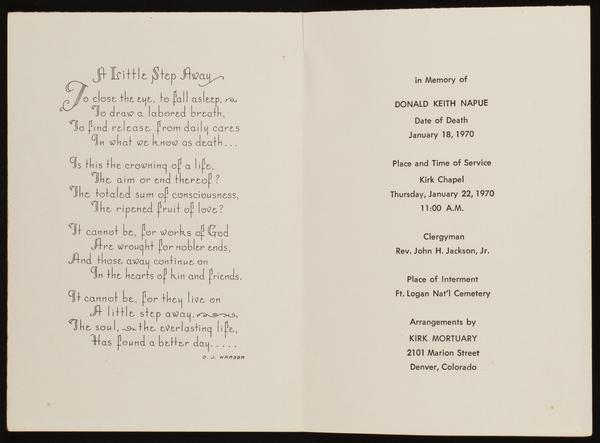 A Little Step Away
To close the eye, to fall asleep,
To draw a labored breath,
To find release from daily cares
In what we know as death...
Is this the crowning of a life,
The aim or end thereof?
The totaled sum of consciousness,
The ripened fruit of love?
It cannot be, for works of God
Are wrought for nobler ends,
And those away continue on
In the hearts of kin and friends.
It cannot be, for they live on
A little step away.
The soul, the everlasting life,
Has found a better day.....
O. J. HANSON
in Memory of
DONALD KEITH NAPUE
Date of Death
January 18, 1970
Place and Time of Service
Kirk Chapel
Thursday, January 22, 1970
11:00 A.M.
Clergyman
Rev. John H. Jackson, Jr.
Place of Interment
Ft. Logan Nat'l Cemetery
Arrangements by
KIRK MORTUARY
2101 Marion Street
Denver, Colorado